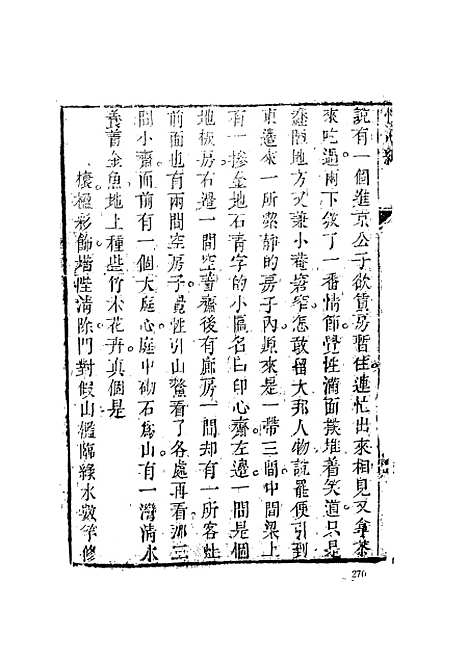 說有一個進京公子欲賃房暫住連忙出來相見又拿茶
來吃過兩下敘了一番情節覺性滿面堆着笑道只是
地方又兼小菴窄怎敢留大邦人物說罷便引到
東邊來一所潔静的房子內原來是一帶三間中間梁上
有一摻金地石青字的小匾名曰印心齋左邊一間是個
地板房右邊一間空著齋後有廊房一間却有一所客灶
前面也有兩間空房子覺性引山鰲看了各處再看那三
間小齋面前有一個大庭心庭中砌石爲山有一灣清水
養著金魚地上種些竹木花卉真個是
棟彩飾堦清除門對假山綠水數竿修
270